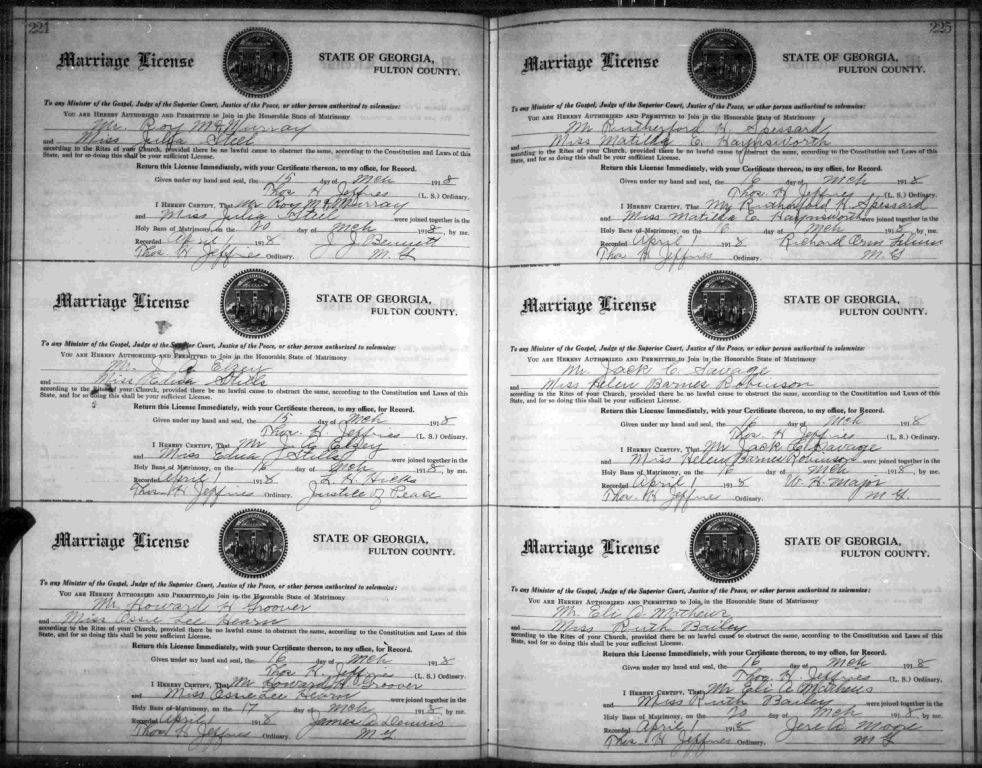 221
Marriage License
STATE OF GEORGIA,
FULTON COUNTY.
To any Minister of the Gospel, Judge of the Superior Court, Justice of the Peace, or other person authorized to solemnize:
YOU ARE HEREBY AUTHORIZED AND PERMITTED to Join in the Honorable State of Matrimony
Mr. Roy McMurray
and Miss Julia Steil
according to the Rites of your Church, provided there be no lawful cause to obstruct the same, according to the Constitution and Laws of this
State, and for so doing this shall be your sufficient License.
Return this License Immediately, with your Certificate thereon, to my office, for Record.
Given under my hand and seal, the 15 day of Mch 1918
Thos. H Jeffries (L. S.) Ordinary.
I HEREBY CERTIFY, That Mr Roy McMurray
and Miss Julia Steil were joined together in the
Holy Bans of Matrimony, on the 20 day of Mch 1918, by me.
Recorded April 1 1918 J. J. Bennett
Thos. H Jeffries Ordinary. M. G
Marriage License
STATE OF GEORGIA,
FULTON COUNTY.
To any Minister of the Gospel, Judge of the Superior Court, Justice of the Peace, or other person authorized to solemnize:
YOU ARE HEREBY AUTHORIZED AND PERMITTED to Join in the Honorable State of Matrimony
Mr. Elzey
and Miss Stills
according to the Rites of your Church, provided there be no lawful cause to obstruct the same, according to the Constitution and Laws of this
State, and for so doing this shall be your sufficient License.
Return this License Immediately, with your Certificate thereon, to my office, for Record.
Given under my hand and seal, the 15 day of Mch 1918
Thos. H Jeffries (L. S.) Ordinary.
I HEREBY CERTIFY, That Mr Elzey
and Miss Edna Stills were joined together in the
Holy Bans of Matrimony, on the 16 day of Mch 1918, by me.
Recorded April 1 1918 L. H. Hicks
Thos. H Jeffries Ordinary. Justice of Peace
Marriage License
STATE OF GEORGIA,
FULTON COUNTY.
To any Minister of the Gospel, Judge of the Superior Court, Justice of the Peace, or other person authorized to solemnize:
YOU ARE HEREBY AUTHORIZED AND PERMITTED to Join in the Honorable State of Matrimony
Mr Howard H Groover
and Miss Ossie Lee Hearn
according to the Rites of your Church, provided there be no lawful cause to obstruct the same, according to the Constitution and Laws of this
State, and for so doing this shall be your sufficient License.
Return this License Immediately, with your Certificate thereon, to my office, for Record.
Given under my hand and seal, the 16 day of Mch 1918
Thos. H Jeffries (L. S.) Ordinary.
I HEREBY CERTIFY, That Mr Howard H Groover
and Miss Ossie Lee Hearn were joined together in the
Holy Bans of Matrimony, on the 17 day of Mch 1918, by me.
Recorded April 1 1918 James A Dennis
Thos H Jeffries Ordinary. M G
225
Marriage License
STATE OF GEORGIA,
FULTON COUNTY.
To any Minister of the Gospel, Judge of the Superior Court, Justice of the Peace, or other person authorized to solemnize:
YOU ARE HEREBY AUTHORIZED AND PERMITTED to Join in the Honorable State of Matrimony
Mr Rutherford H. Spessard
and Miss Matilda E. Haynsworth
according to the Rites of your Church, provided there be no lawful cause to obstruct the same, according to the Constitution and Laws of this
State, and for so doing this shall be your sufficient License.
Return this License Immediately, with your Certificate thereon, to my office, for Record.
Given under my hand and seal, the 16 day of Mch 1918
Thos. H Jeffries (L. S.) Ordinary.
I HEREBY CERTIFY, That Mr Rutherford H Spessard
and Miss Matilda E Haynsworth were joined together in the
Holy Bans of Matrimony, on the 16 day of Mch 1918, by me.
Recorded April 1 1918 Richard Orm Flinn
Thos. H Jeffries Ordinary. M. G
Marriage License
STATE OF GEORGIA,
FULTON COUNTY.
To any Minister of the Gospel, Judge of the Superior Court, Justice of the Peace, or other person authorized to solemnize:
YOU ARE HEREBY AUTHORIZED AND PERMITTED to Join in the Honorable State of Matrimony
Mr. Jack C. Savage
and Miss Helen Barnes Robinson
according to the Rites of your Church, provided there be no lawful cause to obstruct the same, according to the Constitution and Laws of this
State, and for so doing this shall be your sufficient License.
Return this License Immediately, with your Certificate thereon, to my office, for Record.
Given under my hand and seal, the 16 day of Mch 1918
Thos. H Jeffries (L. S.) Ordinary.
I HEREBY CERTIFY, That Mr Jack C Savage
and Miss Helen Barnes Robinson were joined together in the
Holy Bans of Matrimony, on the 16 day of Mch 1918, by me.
Recorded April 1 1918 W. H. Major
Thos. H Jeffries Ordinary. M G
Marriage License
STATE OF GEORGIA,
FULTON COUNTY.
To any Minister of the Gospel, Judge of the Superior Court, Justice of the Peace, or other person authorized to solemnize:
YOU ARE HEREBY AUTHORIZED AND PERMITTED to Join in the Honorable State of Matrimony
Mr Eli A Mathews
and Miss Ruth Bailey
according to the Rites of your Church, provided there be no lawful cause to obstruct the same, according to the Constitution and Laws of this
State, and for so doing this shall be your sufficient License.
Return this License Immediately, with your Certificate thereon, to my office, for Record.
Given under my hand and seal, the 16 day of Mch 1918
Thos. H Jeffries (L. S.) Ordinary.
I HEREBY CERTIFY, That Mr Eli A Mathews
and Miss Ruth Bailey were joined together in the
Holy Bans of Matrimony, on the day of Mch 1918, by me.
Recorded April 1 1918 Jere A Moore
Thos. H Jeffries Ordinary. M G